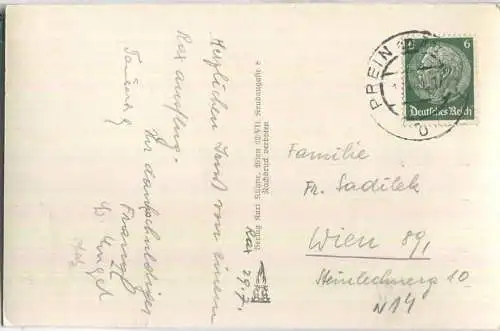 Herzlichen Gruß von einem
Rax ausflug.
Ihr dankschuldiger
Franzl
Rax 29.7.
Verlag Karl Kühne, Wien
Nachdruck verboten
PREIN
6
Deutsches Reich
Familie
Fr. Sadilek
Wien 89,
Steinlechnerg 10
N14